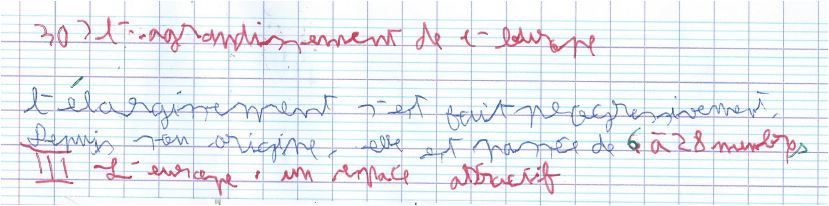 3°) L'agrandissement de l'europe
L'élargissement s'est fait progressivement.
Depuis son origine, elle est passée de 6 à 28 membres
III L'europe : un espace attractif